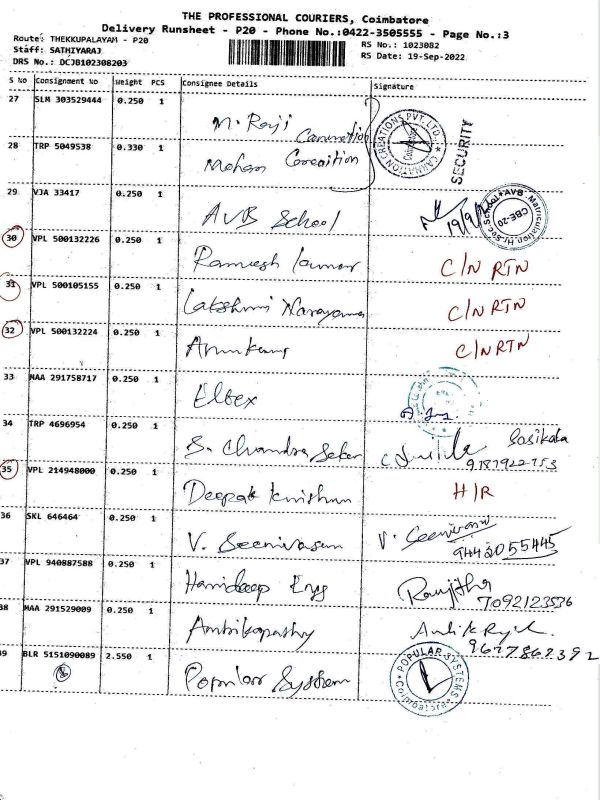 THE PROFESSIONAL COURIERS, Coimbatore
Delivery Runsheet - P20 - Phone No.:0422-3505555 - Page No.:3
Route: THEKKUPALAYAM - P20
RS No.: 1023082
Staff: SATHIYARAJ
RS Date: 19-Sep-2022
DRS No.: DCJB102308203
S No Consignment No Weight PCS Consignee Details Signature
27 SLM 303529444 0.250 1 M. Raji Carnation
CARNATION CREATIONS PVT. LTD.
Coimbatore
SECURITY
28 TRP 5049538 0.330 1 Mohan
29 VJA 33417 0.250 1 AVB School 19/9/
AVB Matriculation Hr. Sec. School
CBE-20
30 VPL 500132226 0.250 1 Ramesh Kumar C/N RTN
31 VPL 500105155 0.250 1 Lakshmi Narayana C/N RTN
32 VPL 500132224 0.250 1 Arunkumar C/N RTN
33 MAA 291758717 0.250 1 Eltex
34 TRP 4696954 0.250 1 S. Chandra Seker Sasikala
35 VPL 214948000 0.250 1 Deepak Krishnan H/R
36 SKL 646464 0.250 1 V. Seenivasan V. Seenivasan
9442055445
37 VPL 940887588 0.250 1 Harideep Engg Ranjitha
7092123536
38 MAA 291529009 0.250 1 Ambikapathy
9677862392
39 BLR 5151090089 2.550 1 Popular System
POPULAR SYSTEMS
Coimbatore